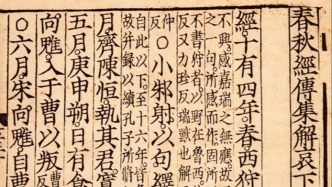 春秋經傳集解哀下
經十有四年春西狩
不興感嘉瑞之無應故
之一句所感而作固所
不書狩者
反又力珍反瑞獸也解
小邾射以句繹
自此以下至十六年皆
故并錄以續孔子所脩
月齊陳恒執其君寘
五月庚申朔日有食
向魋入于曹以叛
○六月宋向魋自曹